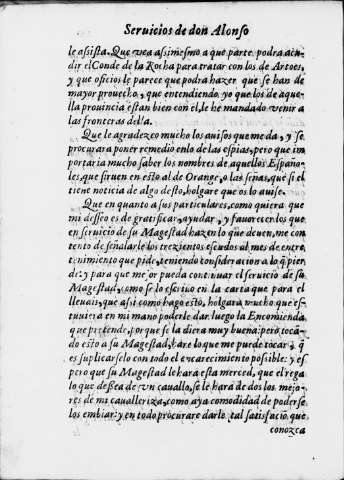 Seruicios de don Alonso
le assista. Que vea assimesmo a que parte podra acu-
dir el Conde de la Rocha para tratar con los de Artoes,
y que oficios le parece que podra hazer que se han de
mayor prouecho, y que entendiendo yo que los de aque-
lla prouincia estan bien con el, le he mandado venir a
las fronteras della.
Que le agradezco mucho los auisos que me da, y se
procurara poner remedio en lo de las espias, pero que im
portaria mucho saber los nombres de aquellos Españo-
les, que siruen en esto al de Orange, o las señas, que si el
tiene noticia de algo desto, holgare que os lo auise.
Que en quanto a sus particulares, como quiera que
mi desseo es de gratificar, ayudar, y fauorecer los que
en seruicio de su Magestad hazen lo que deuen, me con
tento de señalarle los trezientos escudos al mes de entre
tenimiento que pide, teniendo consideracion a lo q̃ pier
de: y para que mejor pueda continuar el seruicio de su
Magestad, como se lo escriuo en la carta que para el
lleuais, que assi como hago esto, holgara mucho que es-
tuuiera en mi mano poderle dar luego la Encomienda
que pretende, porque se la diera muy buena: pero tocã-
do esto a su Magestad, hare lo que me puede tocar, q̃
es suplicarselo con todo el encarecimiento possible: y es
pero que su Magestad le hara esta merced, que el rega
lo que dessea de vn cauallo, se le hara de dos los mejo-
res de mi caualleriza, como aya comodidad de poderse
los embiar: y en todo procurare darle tal satisfaciõ, que
conozca